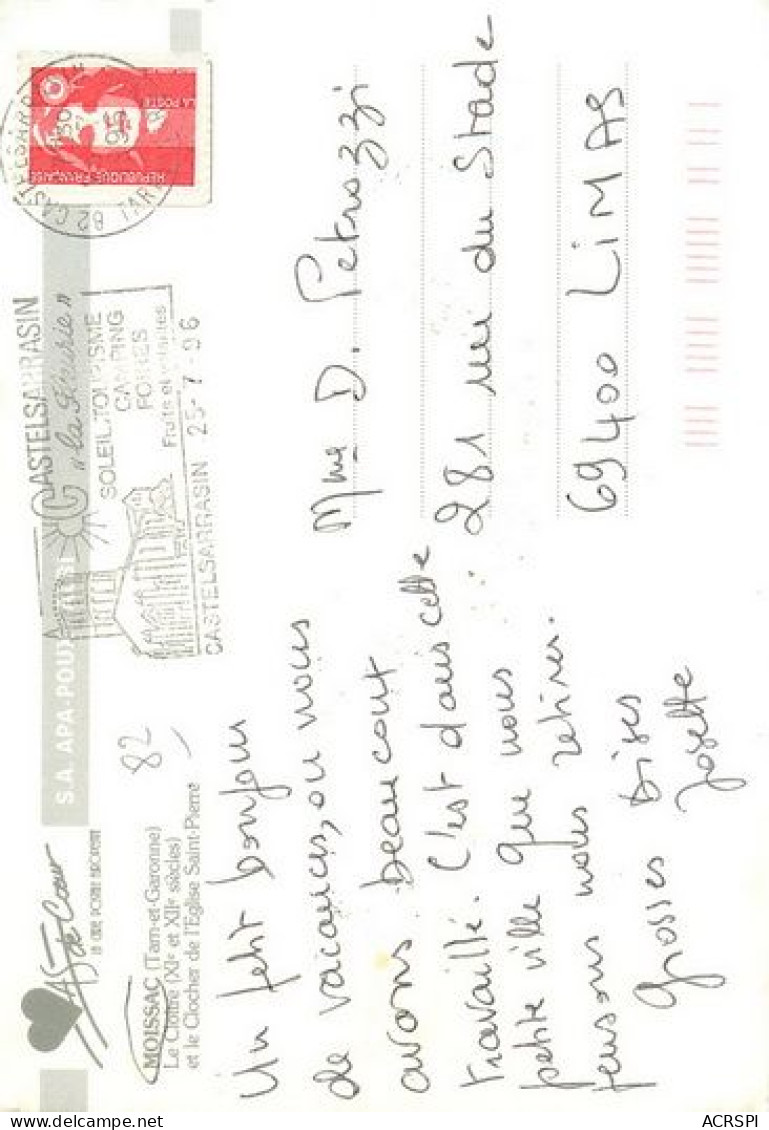 AS de Cœur
S.A. APA-POUX
82
MOISSAC (Tarn-et-Garonne)
Le Cloître (XIe et XIIe siècles)
et le Clocher de l'Eglise Saint-Pierre
LA POSTE
REPUBLIQUE FRANÇAISE
82 CASTELSARRASIN
CASTELSARRASIN
"la fleurie"
SOLEIL, TOURISME
CAMPING
FOIRES
Fruits et
CASTELSARRASIN 25-7-96
Un petit bonjour
de vacances, où nous
avons beaucoup
travaillé. C'est dans cette
petite ville que nous
pensons nous retirer.
Grosses bises
Josette
Mme D. Petrozzi
281 rue du Stade
69400 LiMAS
ACRSPI